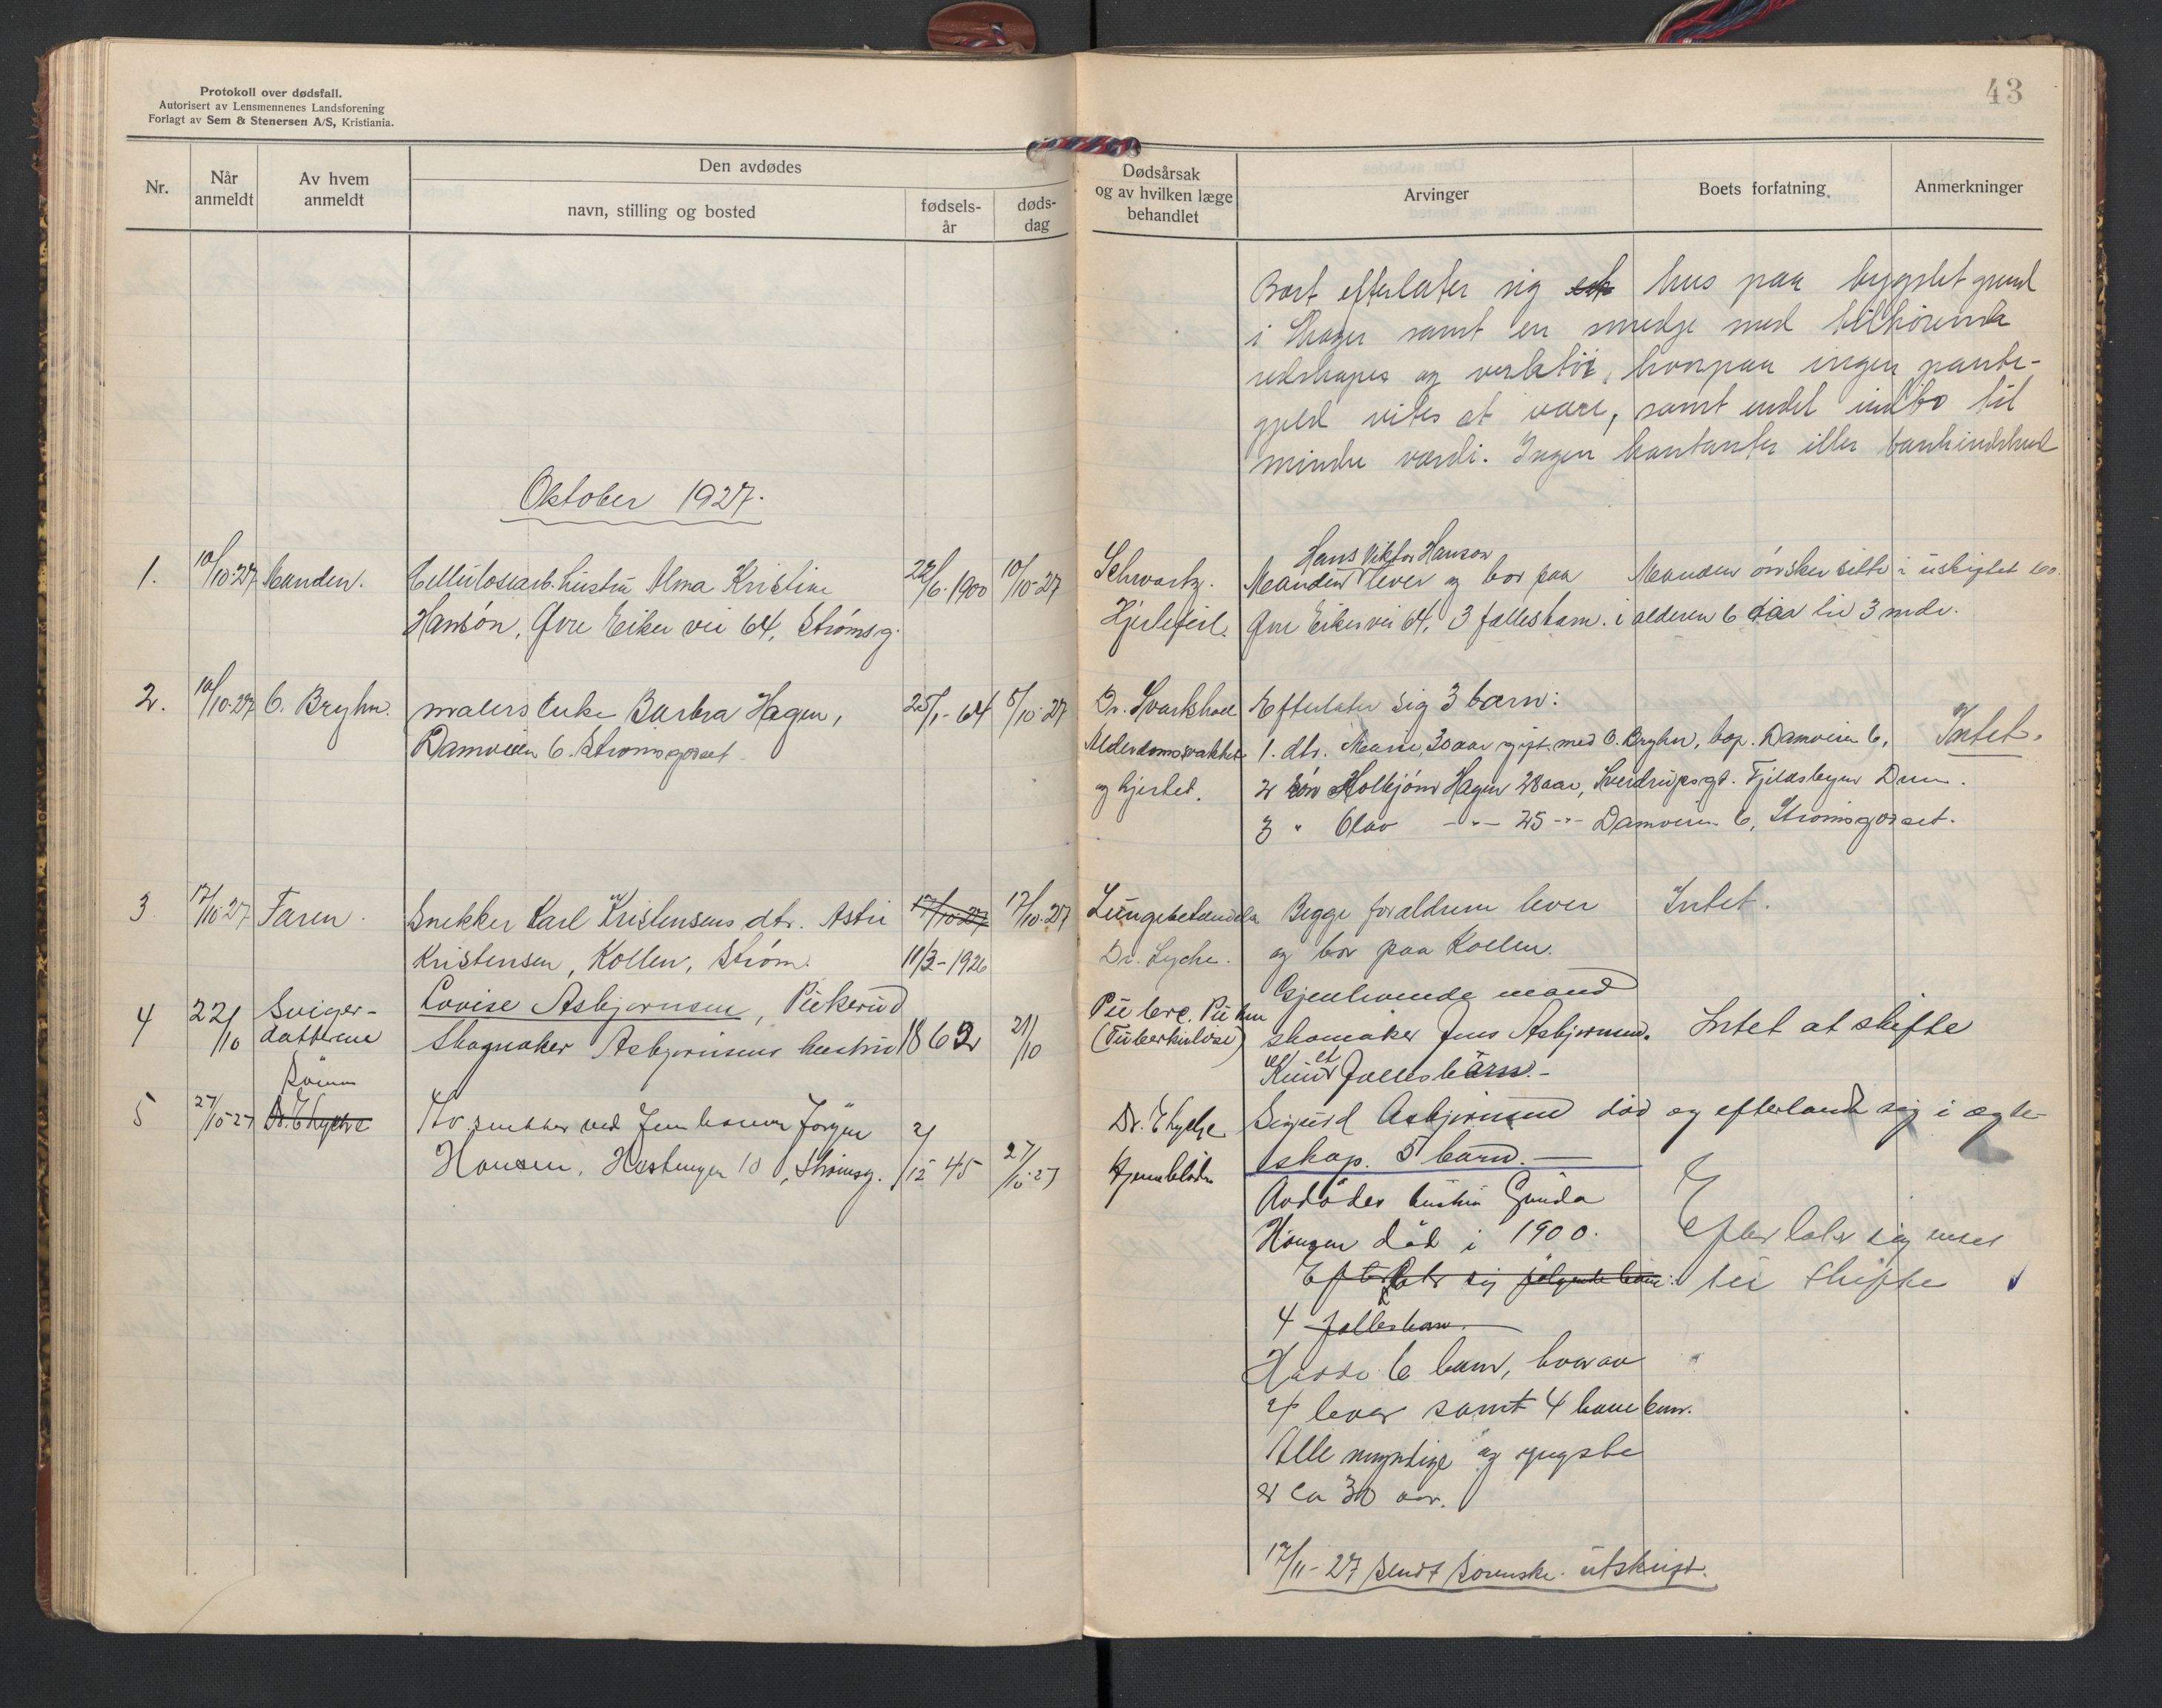 Protokoll over dødsfall.
Autorisert av Lensmennenes Landsforening
Forlagt av Sem & Stenersen A/S, Kristiania.
43
Nr.
Når anmeldt
Av hvem anmeldt
Den avdødes
navn, stilling og bosted
fødsels-år
døds-dag
Dødsårsak og av hvilken læge behandlet
Arvinger
Boets forfatning
Anmerkninger
Bort efterlater sig hus paa bygslet grund
i samt en smedje med tilhørende
redskaper og verktöi, hvorpaa ingen pante-
gjeld vites at være, samt endel indbo til
mindre værdi. Ingen kontanter eller bankindskud
Oktober 1927.
1. 10/10-27 Manden. Cellulosearb. hustru Alma Kristine 22/6-1900 10/10-27 Schwartz. Hans Viktor Hanson
Manden lever og bor paa Manden ønsker sitte i uskiftet bo.
Hansön, Øvre Eiker vei 64, Strømsg. Hjertefeil. Øvre Eikervei 64, 3 fællesbarn. i alderen 6 aar til 3 mdr.
2. 10/10-27 O. Bryhn. malers enke Barbra Hagen, 25/1-64 8/10-27 Dr. Svartshoel Efterlater sig 3 barn:
Damveien 6. Strømsgodset Alderdomssvakhet 1. dtr. Marie, 30 aar gift med O. Bryhn, bop. Damveien 6, Intet.
og hjertet. 2 sön Holbjörn Hagen 28 aar, Sverdrupsgt. Fjeldsbyen Drm.
3 " Olav -"- 25 -"- Damveien 6, Strømsgodset.
3 17/10-27 Faren. Snekker Karl Kristensens dtr. Astri 17/10-27 17/10-27 Lungebetændelse Begge forældrene lever Intet.
Kristensen, Kollen, Strøm. 11/3-1926 Dr. Lyche. og bor paa Kollen.
4 22/10 Sviger-datteren Lovise Asbjørnsen, Pukerud 1862 21/10 Gjenlevende mand
Skomaker Asbjørnsens hustru (Tuberkuløse) skomaker Jens Asbjørnsen. Intet at skifte
et Fællesbarn.-
5 27/10-27 Sönnen Dr. E Lyche Fhv. snekker ved Jernbanen Jörgen 2/12 45 27/10-27 Dr. E Lyche Sigurd Asbjørnsen död og efterlandt sig i ægte-
Hansen, Havstenger 10, Strömsg. Hjerneblödn. skap. 5 barn.-
Avdödes hustru Gunda
Hansen död i 1900. Efterlater sig intet
Efterlater sig følgende barn: til skifte
4 fællesbarn.
Hadde 6 barn, hvorav
4 lever samt 4 barnebarn.
Alle myndige og yngste
er ca 30 aar.
17/11-27 Sendt Sorenskr. utskrift.